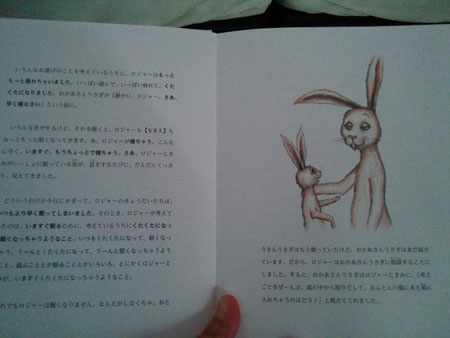 いろんなお遊びのことを考えているうちに、ロジャーはもっと
もっと疲れちゃいました。いっぱい遊んで、いっぱい疲れて、くた
くたになりました。おかあさんうさぎが「静かに、ロジャー。さあ、
早く寝なさい」という前に。
いろんな音がするけど、それを聞くと、ロジャーも【なまえ】も
もっともっと眠くなってきます。あ、ロジャーが寝ちゃう。こんな
に早く、いますぐ、もうちょっとで寝ちゃう。さあ、ロジャーとき
みがいっしょに
息をするたびに、だんだんくっき
り、
きました。
どういうわけか今日にかぎって、ロジャーのきょうだいたちは、
いつもより早く眠ってしまいました。そのとき、ロジャーが考えて
いたのは、いますぐ眠るために、考えているうちにくたくたになっ
て眠くなっちゃうようなこと。いつもくたくたになって、眠くなっ
ちゃう。うーんとくたくたになって、うーんと眠くなっちゃうよう
なこと。遊ぶことことか眠ることとかいろいろ。とにかくロジャーと
いますぐくたくたになっちゃうようなこと。
それでもロジャーは眠くなりません。なんとかしなくちゃ。おと
うさんうさぎはもう眠っていたけど、おかあさんうさぎはまだ起き
ています。だから、ロジャーはおかあさんうさぎに相談することに
しました。すると、おかあさんうさぎはロジャーときみに、「考え
ごとをぜーんぶ、頭の中から取りだして、おふとんの横にある箱に
入れちゃうのはどう？」と教えてくれました。